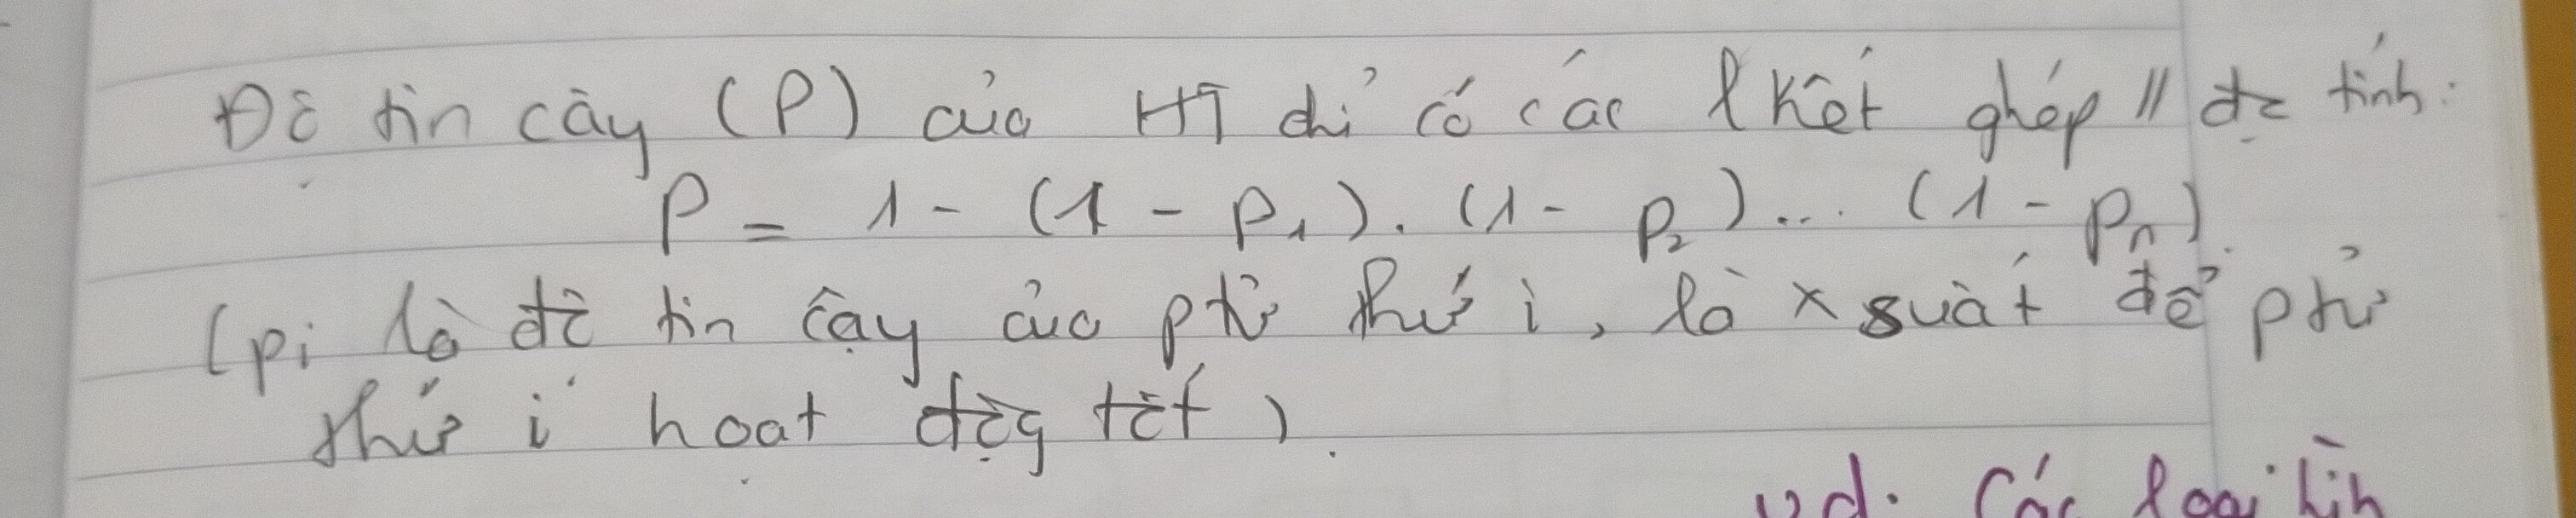 Độ tin cậy (P) của HT chỉ có các lkết ghép // đc tính:
P = 1 - (1 - P₁). (1 - P₂)... (1 - Pₙ).
(pi là độ tin cậy của ptử thứ i, là xsuất để ptử
thứ i hoạt độg tốt).
vd: Các loại